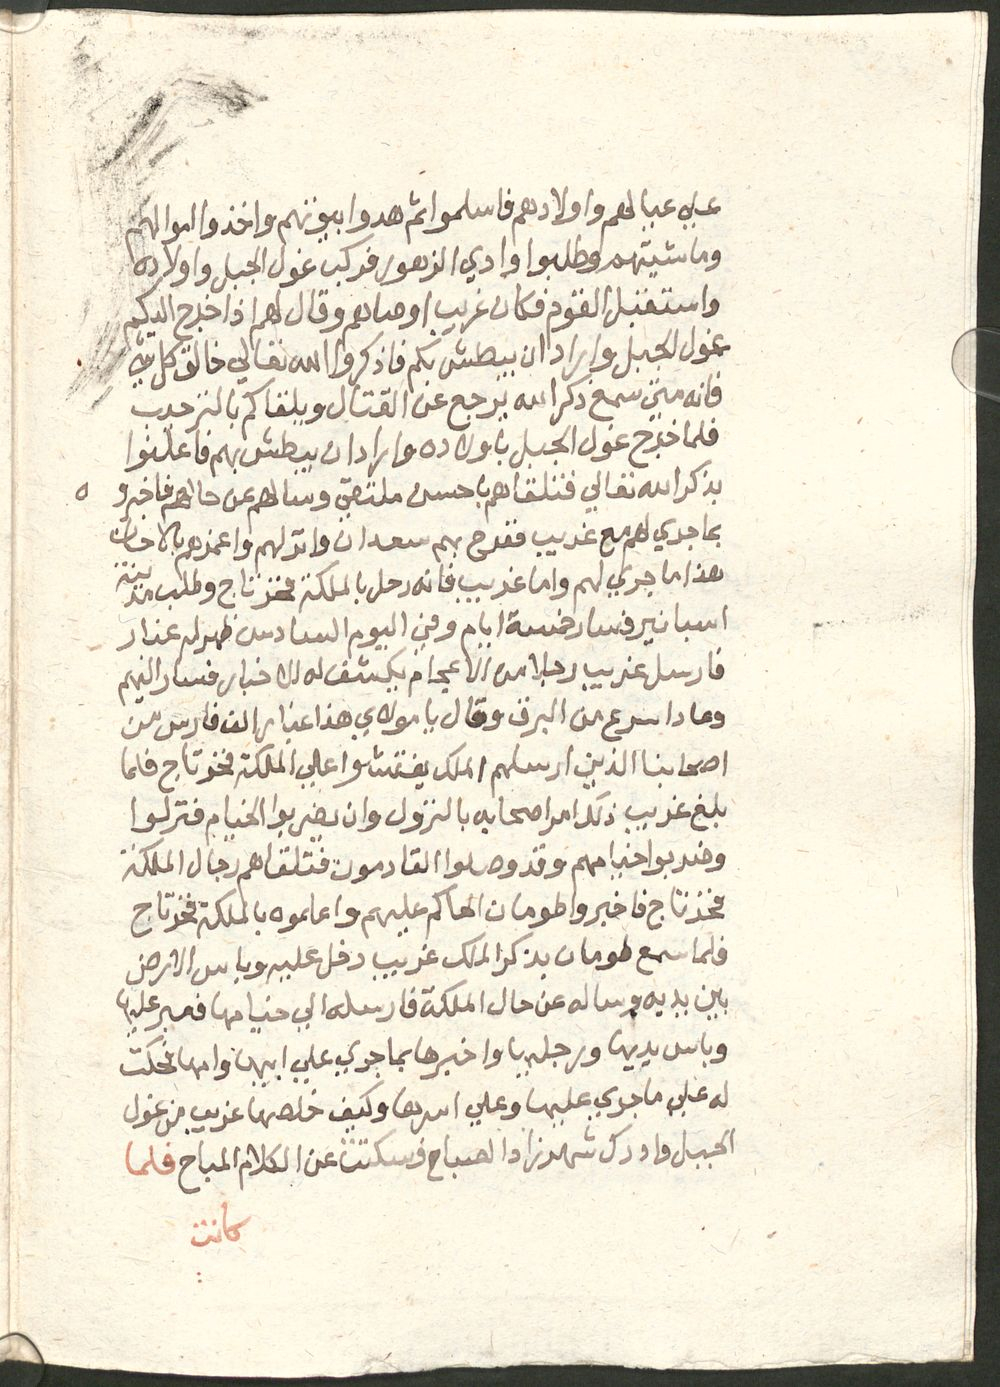 عليه عيالهم واولادهم فاسلموا ثم هدوا بيوتهم واخذوا اموالهم
وماشيتهم وطلبوا وادي الزهور فركب غول الجبل واولاده
واستقبل القوم فكان غريب اوصاهم وقال لهم اذا خرج اليكم
غول الجبل واراد ان يبطش بكم فاذكروا الله تعالي خالق كل شي
فانه متي سمع ذكر الله يرجع عن القتال ويلقاكم بالترحيب
فلما خرج غول الجبل باولاده واراد ان يبطش بهم فاعلنوا
بذكر الله تعالي فتلقاهم باحسن ملتقي وسالهم عن حالهم فاخبروه
بما جري لهم مع غريب ففرح بهم سعدان وانزلهم واغمرهم بالاحسان
هذا ما جري لهم واما غريب فانه رحل بالملكة فخرتاج وطلب مدينة
اسبانير فسار خمسة ايام وفي اليوم السادس ظهر له غبار
فارسل غريب رجلا من الاعجام يكشف له الاخبار فسار اليهم
وعاد اسرع من البرق وقال يا مولاي هذا غبار الف فارس من
اصحابنا الذين ارسلهم الملك يفتشوا علي الملكة فخرتاج فلما
بلغ غريب ذلك امر اصحابه بالنزول وان يضربوا الخيام فنزلوا
وضربوا خيامهم وقد وصلوا القادمون فتلقاهم رجال الملكة
فخرتاج فاخبروا طومان الحاكم عليهم واعلموه بالملكة فخرتاج
فلما سمع طومان بذكر الملك غريب دخل عليه وباس الارض
بين يديه وساله عن حال الملكة فارسله الي خيامها فعبر عليها
وباس يديها ورجليها واخبرها بما جري علي ابيها وامها فحكت
له علي ما جري عليها وعلي اسرها وكيف خلصها غريب من غول
الجبل وادرك شهرزاد الصباح فسكتت عن الكلام المباح فلما
كانت